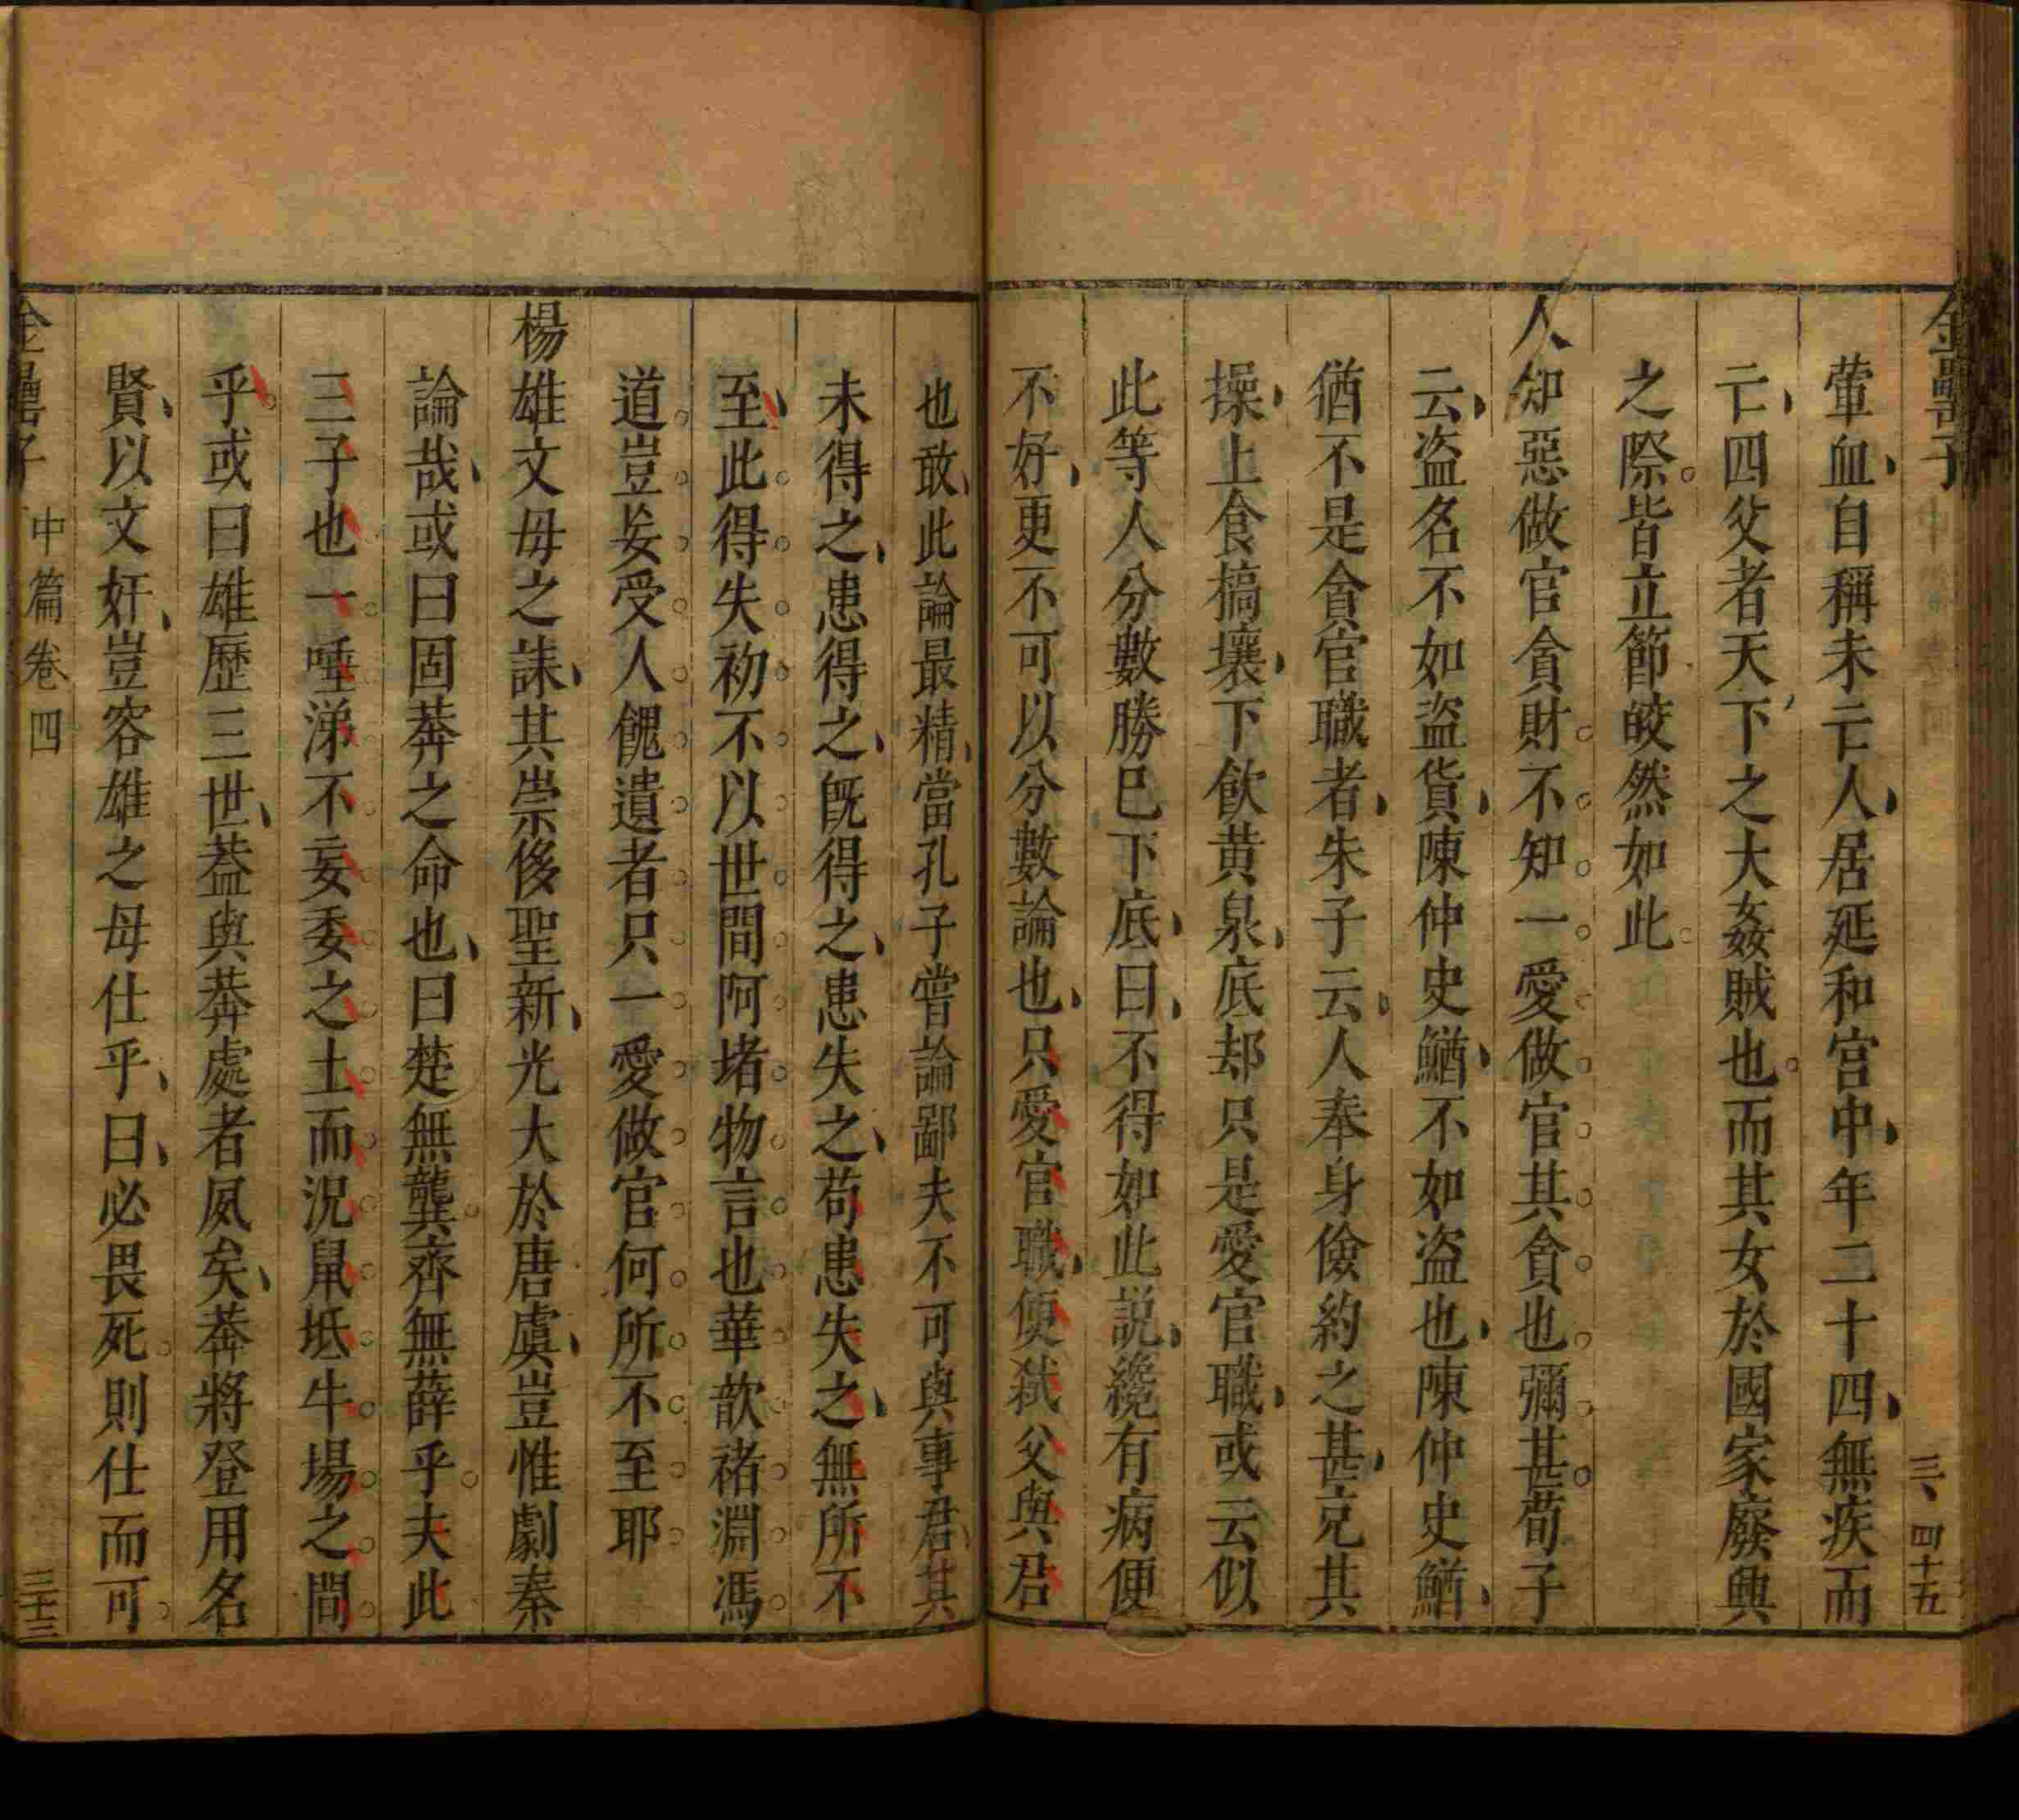 金罍子
三、四十五
葷血自稱未亡人居延和宮中年二十四無疾而
亡四父者天下之大姦賊也而其女於國家廢興
之際皆立節皎然如此
人知惡做官貪財不知一愛做官其貪也彌甚荀子
云盗名不如盗貨陳仲史鰌不如盗也陳仲史鰌
猶不是貪官職者朱子云人奉身儉約之甚克其
操上食槁壤下飲黃泉底却只是愛官職或云似
此等人分數勝巳下底曰不得如此説纔有病便
不好更不可以分數論也只愛官職便弑父與君
也敢此論最精當孔子嘗論鄙夫不可與事君其
未得之患得之既得之患失之苟患失之無所不
至此得失初不以世間阿堵物言也華歆褚淵馮
道豈妄受人餽遺者只一愛做官何所不至耶
楊雄文母之誄其崇侈聖新光大於唐虞豈惟劇秦
論哉或曰固莽之命也曰楚無龔齊無薛乎夫此
三子也一唾涕不妄委之土而況鼠坻牛場之間
乎或曰雄歷三世葢與莽處者夙矣莽將登用名
賢以文奸豈容雄之母仕乎曰必畏死則仕而可
金罍子
中篇卷四
三十三